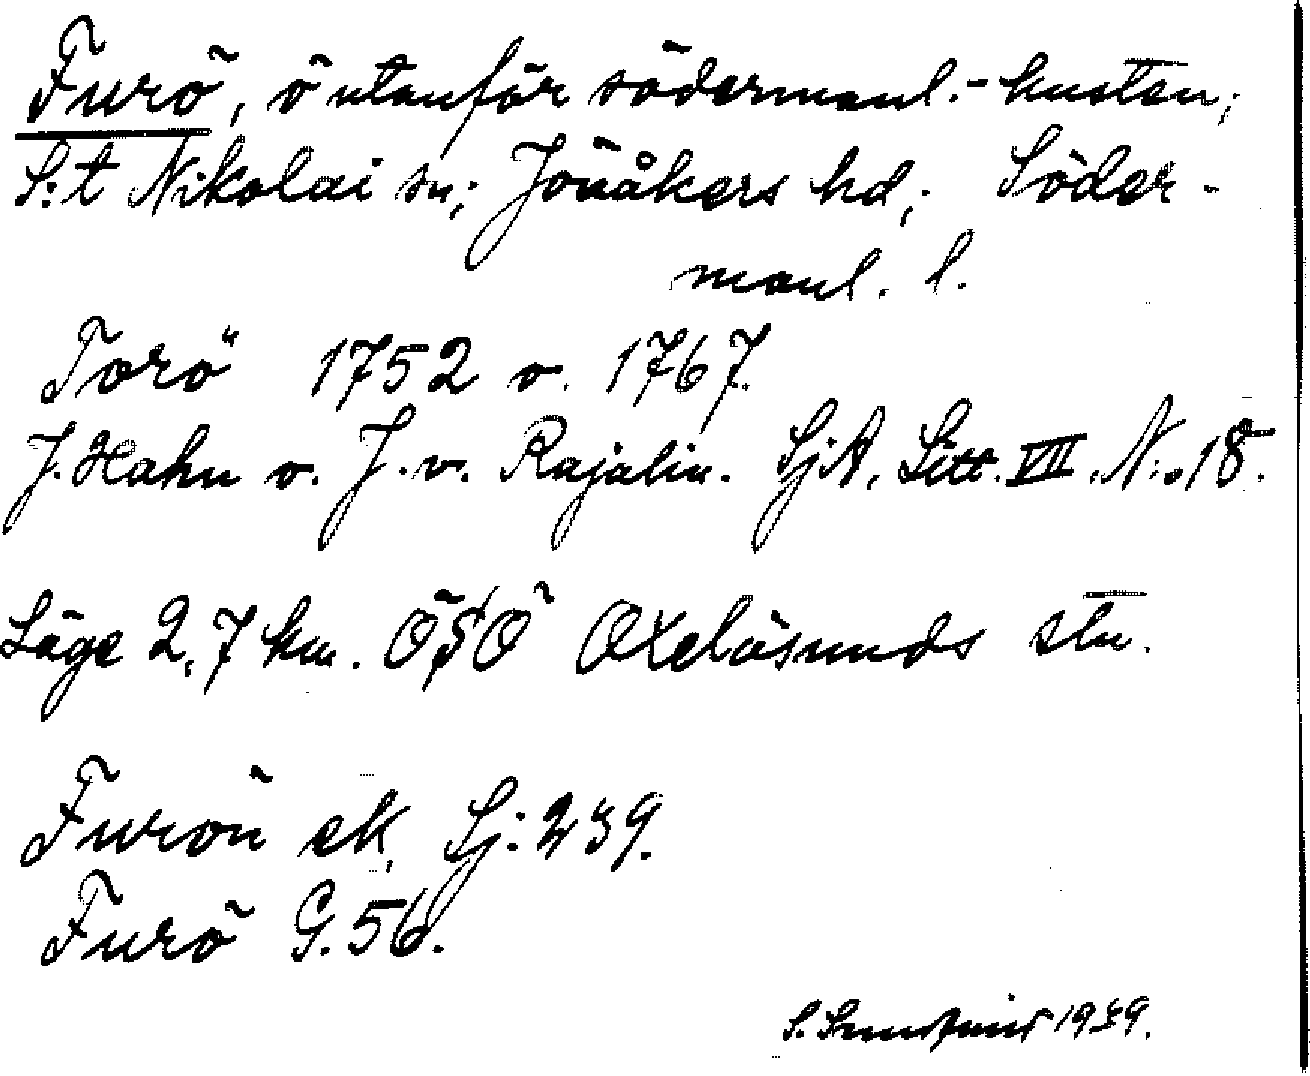 Furö, ö utanför södermanl.-kusten;
S:t Nikolai sn; Jönåkers hd; Söder-
manl. l.
Torö 1752 o. 1767.
J. Hahn o. J. v. Rajalin. SjA, Litt. VII. N:o 18.
Läge 2,7 km. ÖSÖ Oxelösunds stn.
Furön ek. Sj: 239.
Furö G. 56.
S. 1939.